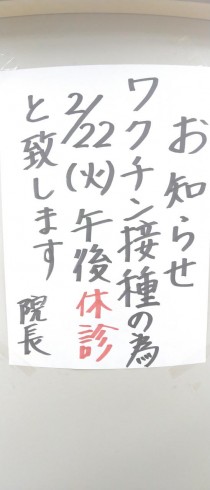 お知らせ
ワクチン接種の為
2/22(火)午後休診
と致します
院長